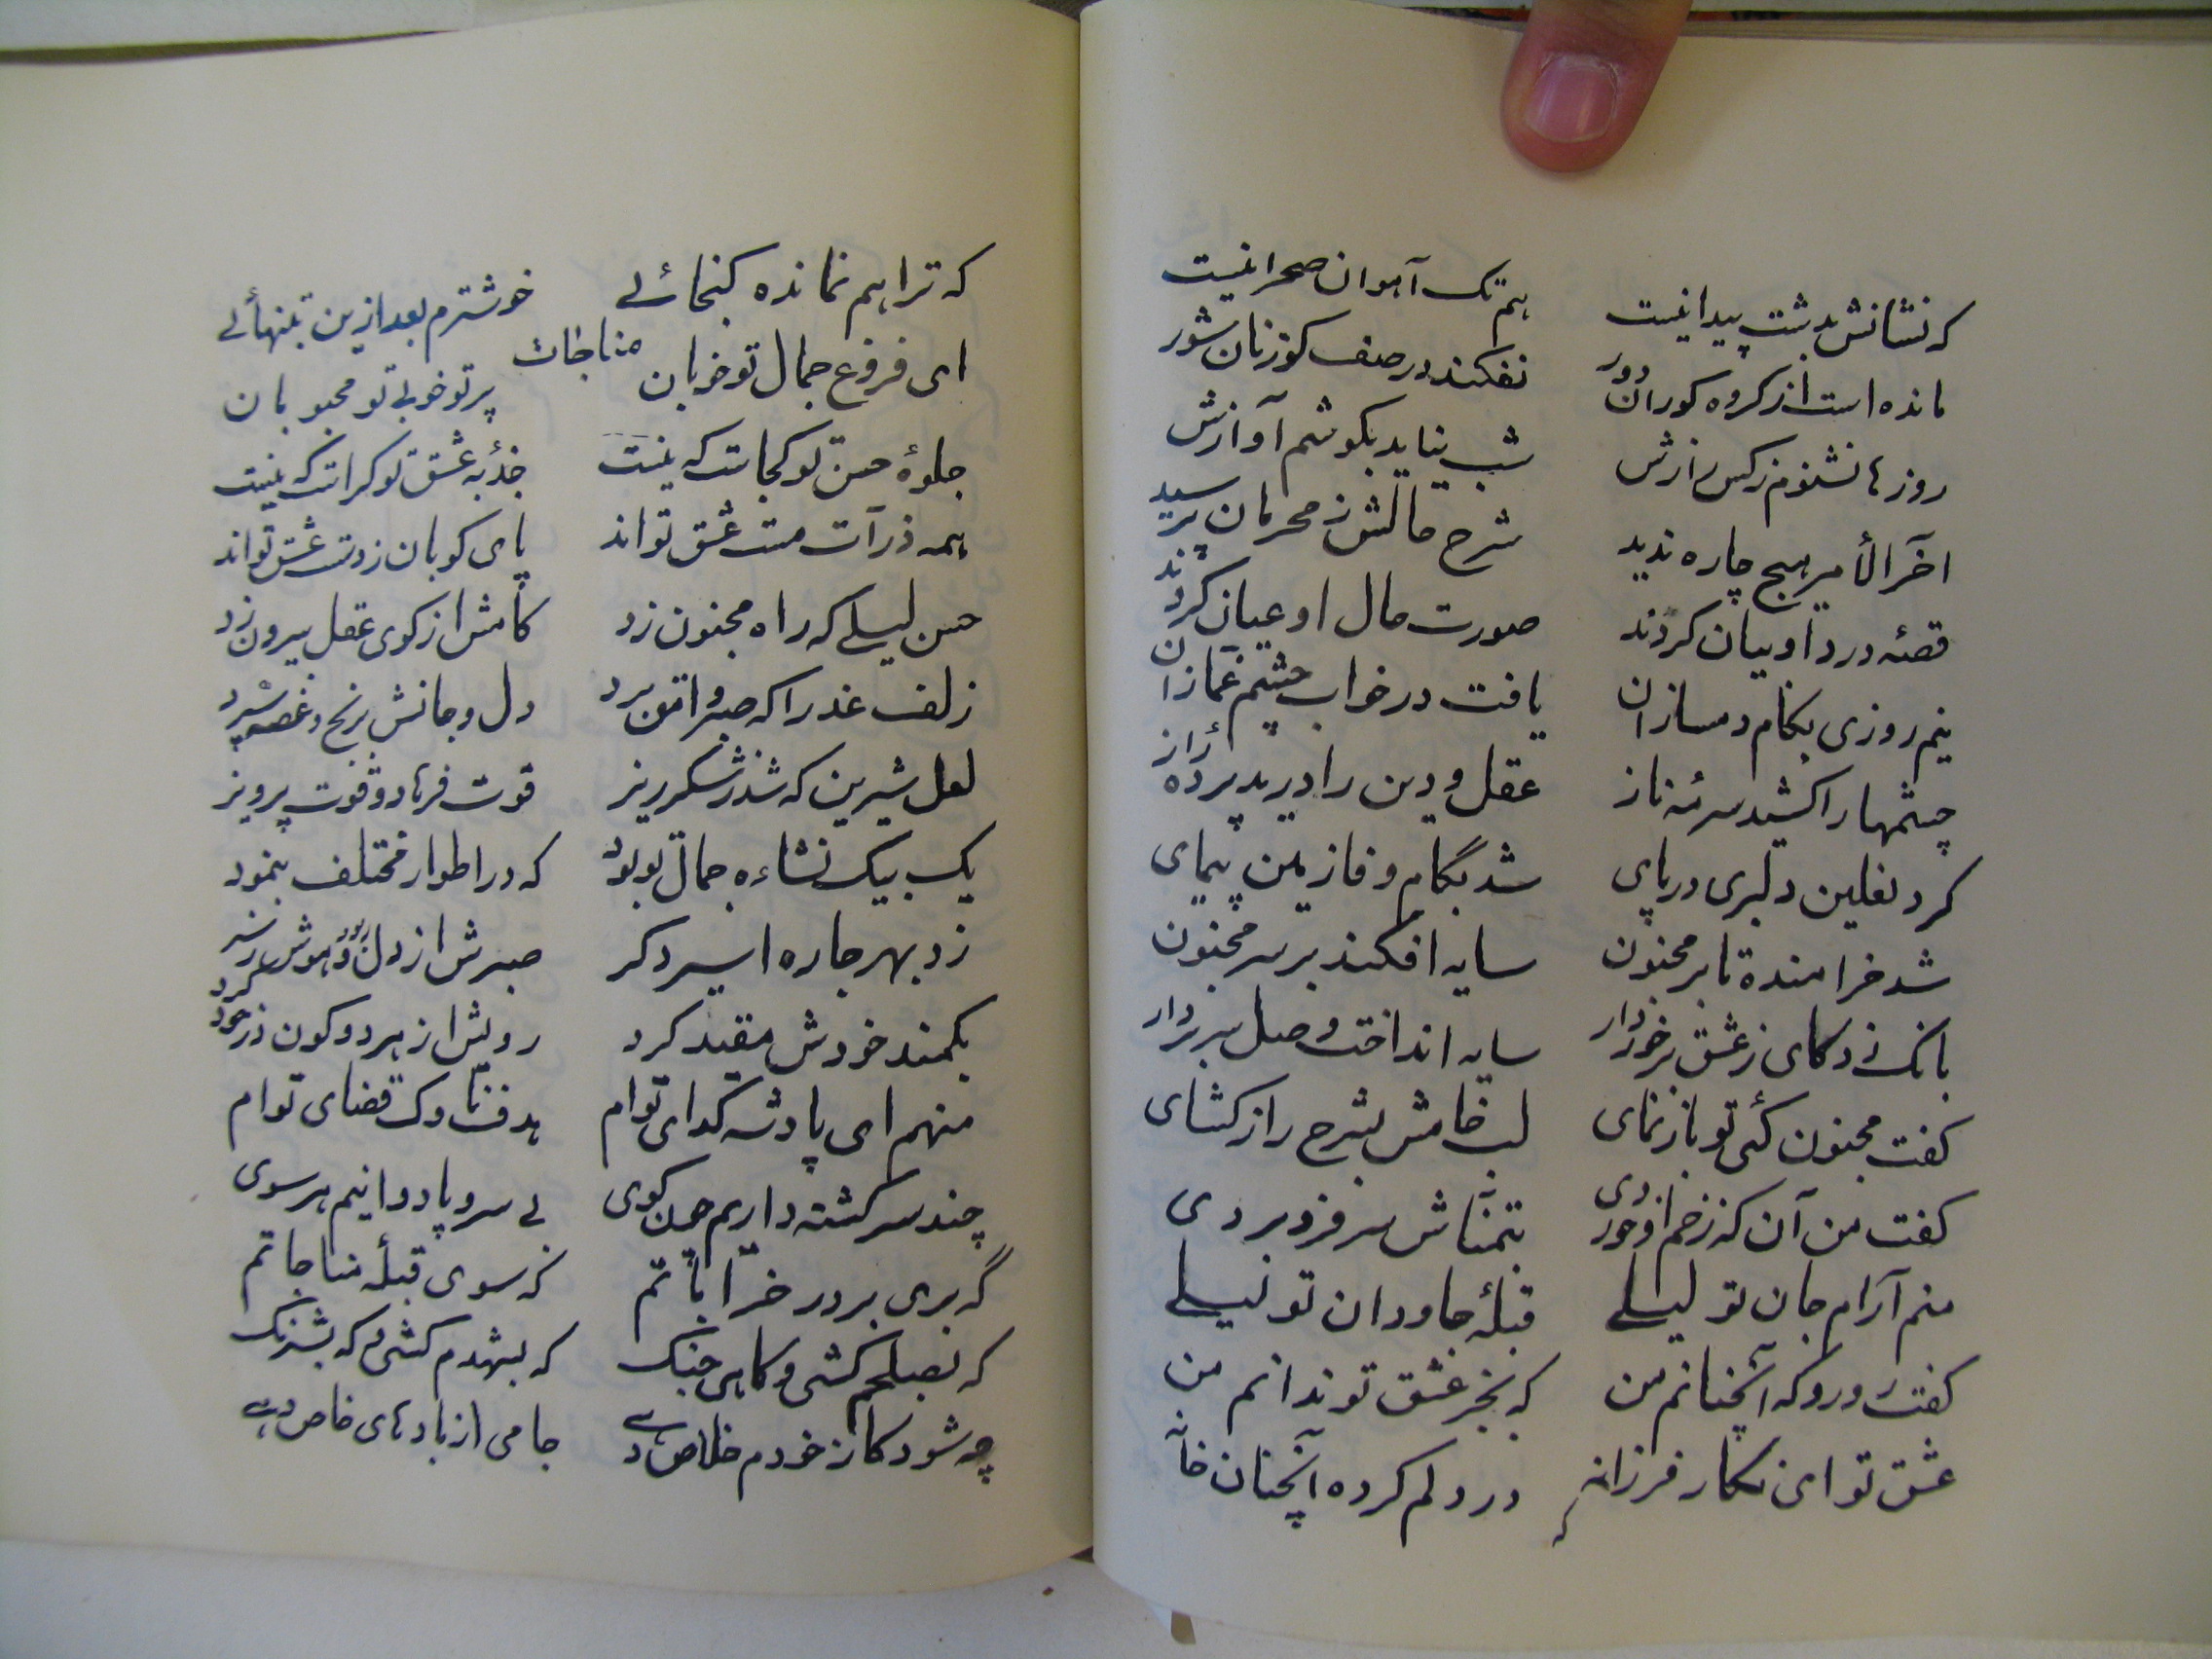 که نشانش بدشت پیدا نیست هم تک آهوان صحرا نیست
مانده است از کروه کوران دور نفکند در صف کوزنان شور
روزها نشنوم زکس رازش شب نیاید بکوشم آوازش
آخر الأمر هیچ چاره ندید شرح حالش ز محرمان پرسید
قصهٔ درد او بیان کردند صورت حال او عیان کردند
نیم روزی بکام دمسازان یافت در خواب چشم غمازان
چشمها را کشید سرمهٔ ناز عقل و دین را درید پردهٔ راز
کرد نعلین دلبری در پای شد بگام وفا زمین پیمای
شد خرامنده تا بر مجنون سایه افکند بر سر مجنون
بانک زد کای ز عشق برخوردار سایه انداخت وصل سر بردار
کفت مجنون کئی تو باز نمای لب خامش بشرح راز کشای
کفت من آن که زخم او خوردی بتمناش سر فرو بردی
منم آرام جان تو لیلے قبلهٔ جاودان تو لیلے
کفت رو رو که آنچنانم من که بجز عشق تو ندانم من
عشق تو ای نکار فرزانه در دلم کرده آنچنان خانه
که ترا هم نمانده کنجائے خوشترم بعد ازین بتنهائے
مناجات
ای فروغ جمال تو خوبان پرتو خوبی تو محبوبان
جلوهٔ حسن تو کجاست که نیست جذبهٔ عشق تو کراست که نیست
همه ذرات مست عشق تواند پای کوبان ز دست عشق تواند
حسن لیلے که راه مجنون زد کامش از کوی عقل بیرون زد
زلف عذرا که صبر وامق برد دل و جانش برنج و غصه سپرد
لعل شیرین که شد شکرریز قوت فرهاد و قوت پرویز
یک بیک نشاءه جمال تو بود که در اطوار مختلف بنمود
زد بهر جا ره اسیر دکر صبرش از دل ربود و هوش ز سر
بکمند خودش مقید کرد رویش از هر دو کون در خود کرد
منهم ای پادشه کدای توام هدف ناوک قضای توام
چند سرکشته داریم همن کوی بے سر و پا دوانیم هر سوی
گه بری بر در خراباتم که سوی قبلهٔ مناجاتم
که بصلحم کشی و کاهی جنک که بشهدم کشی و که بشرنک
چه شود کاز خودم خلاص دهے جامی از بادهای خاص دهے